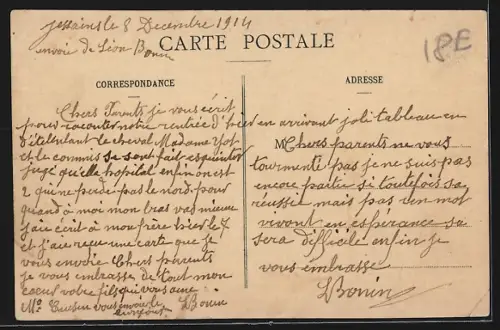 Jessains le 8 Decembre 1914
envoie de Léon Bonin
18E
CARTE POSTALE
CORRESPONDANCE
ADRESSE
Chers Parents je vous écrit
pour raconter notre rentrée d'hier en arrivant joli tableau en
d'ételulant le cheval Madame
et le commis se sont fait esquinter
jugé qu'elle hopital enfin on est
2 qui ne perde pas le nord. pour
quand à moi mon bras vas mieux
j'aie écrit à mon frère hier le 7
et j'aie reçue une carte que je
vous envoie Chers parents
je vous embrasse de tout mon
coeur votre fils qui vous aime
Mr. vous envoie le
LBonin
M Chers parents ne vous
tourmenté pas je ne suis pas
encore partie si toutefois sa
réussie mais pas un mot
vivont en espérance sa
sera difficile enfin je
vous embrasse
LBonin